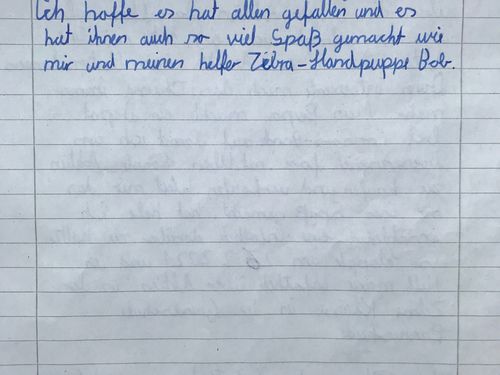 Ich hoffe es hat allen gefallen und es
hat ihnen auch so viel Spaß gemacht wie
mir und meinen helfer Zebra-Handpuppe Bob.